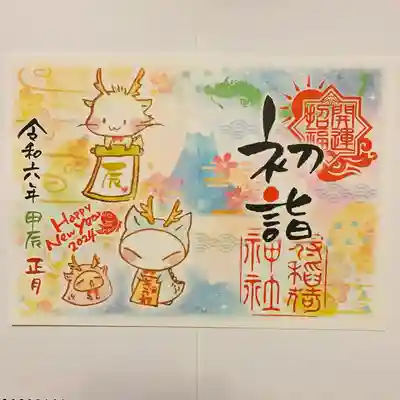 開運
招福
初詣
稲荷
神社
辰
Happy
New Year
2024
令和六年 甲辰 正月